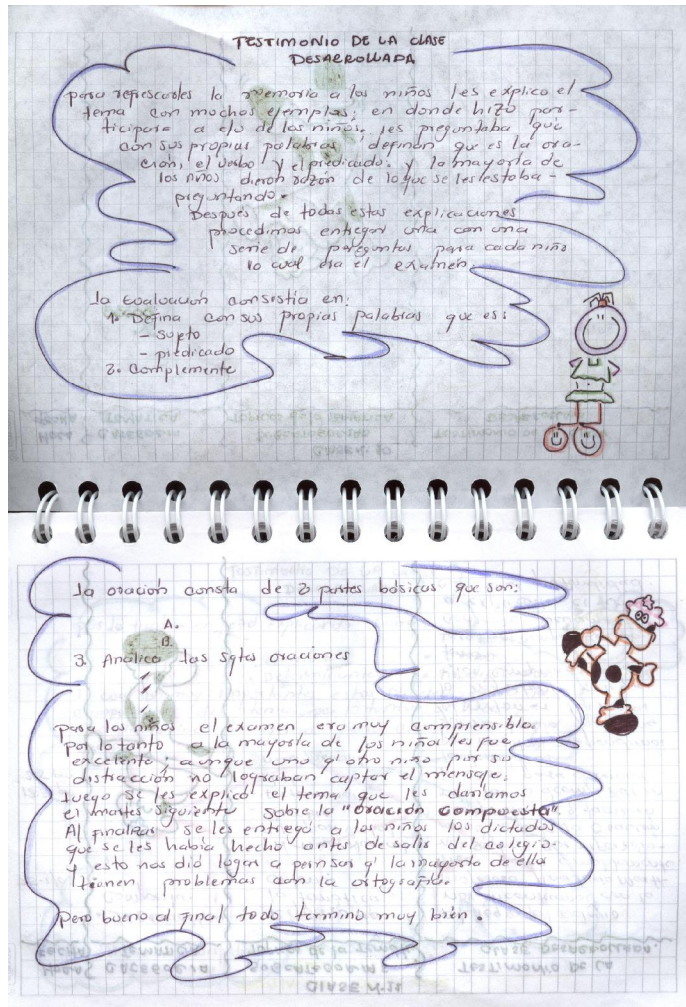 TESTIMONIO DE LA CLASE
DESARROLLADA
para refrescarles la memoria a los niños les explico el
tema con muchos ejemplos; en donde hizo par-
ticipar a c/u de los niños. les preguntaba que
con sus propias palabras definan que es la ora-
ción, el verbo y el predicado. y la mayoría de
los niños dieron razón de lo que se les estaba-
preguntando.
Después de todas estas explicaciones
procedimos entregar una con una
serie de preguntas para cada niño
lo cual era el examen.
la Evaluación consistia en:
1. Defina con sus propias palabras que es:
- Sujeto
- predicado
2. Complemente
la oración consta de 2 partes básicas que son:
A.
B.
3. Analice las sgtes oraciones
para los niños el examen era muy comprensible.
por lo tanto a la mayoría de los niños les fue
excelente; aunque uno q' otro niño por su
distracción no lograban captar el mensaje.
luego se les explicó el tema que les daríamos
el martes siguiente sobre la "oración compuesta".
Al finalizar se les entregó a los niños los dictados
que se les había hecho antes de salir del colegio.
y esto nos dió lugar a pensar q' la mayoría de ellos
tienen problemas con la ortografía.
Pero bueno al final todo termino muy bien.